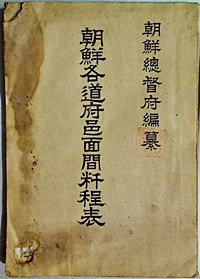 朝鮮總督府編纂
朝鮮各道府邑面間粁程表